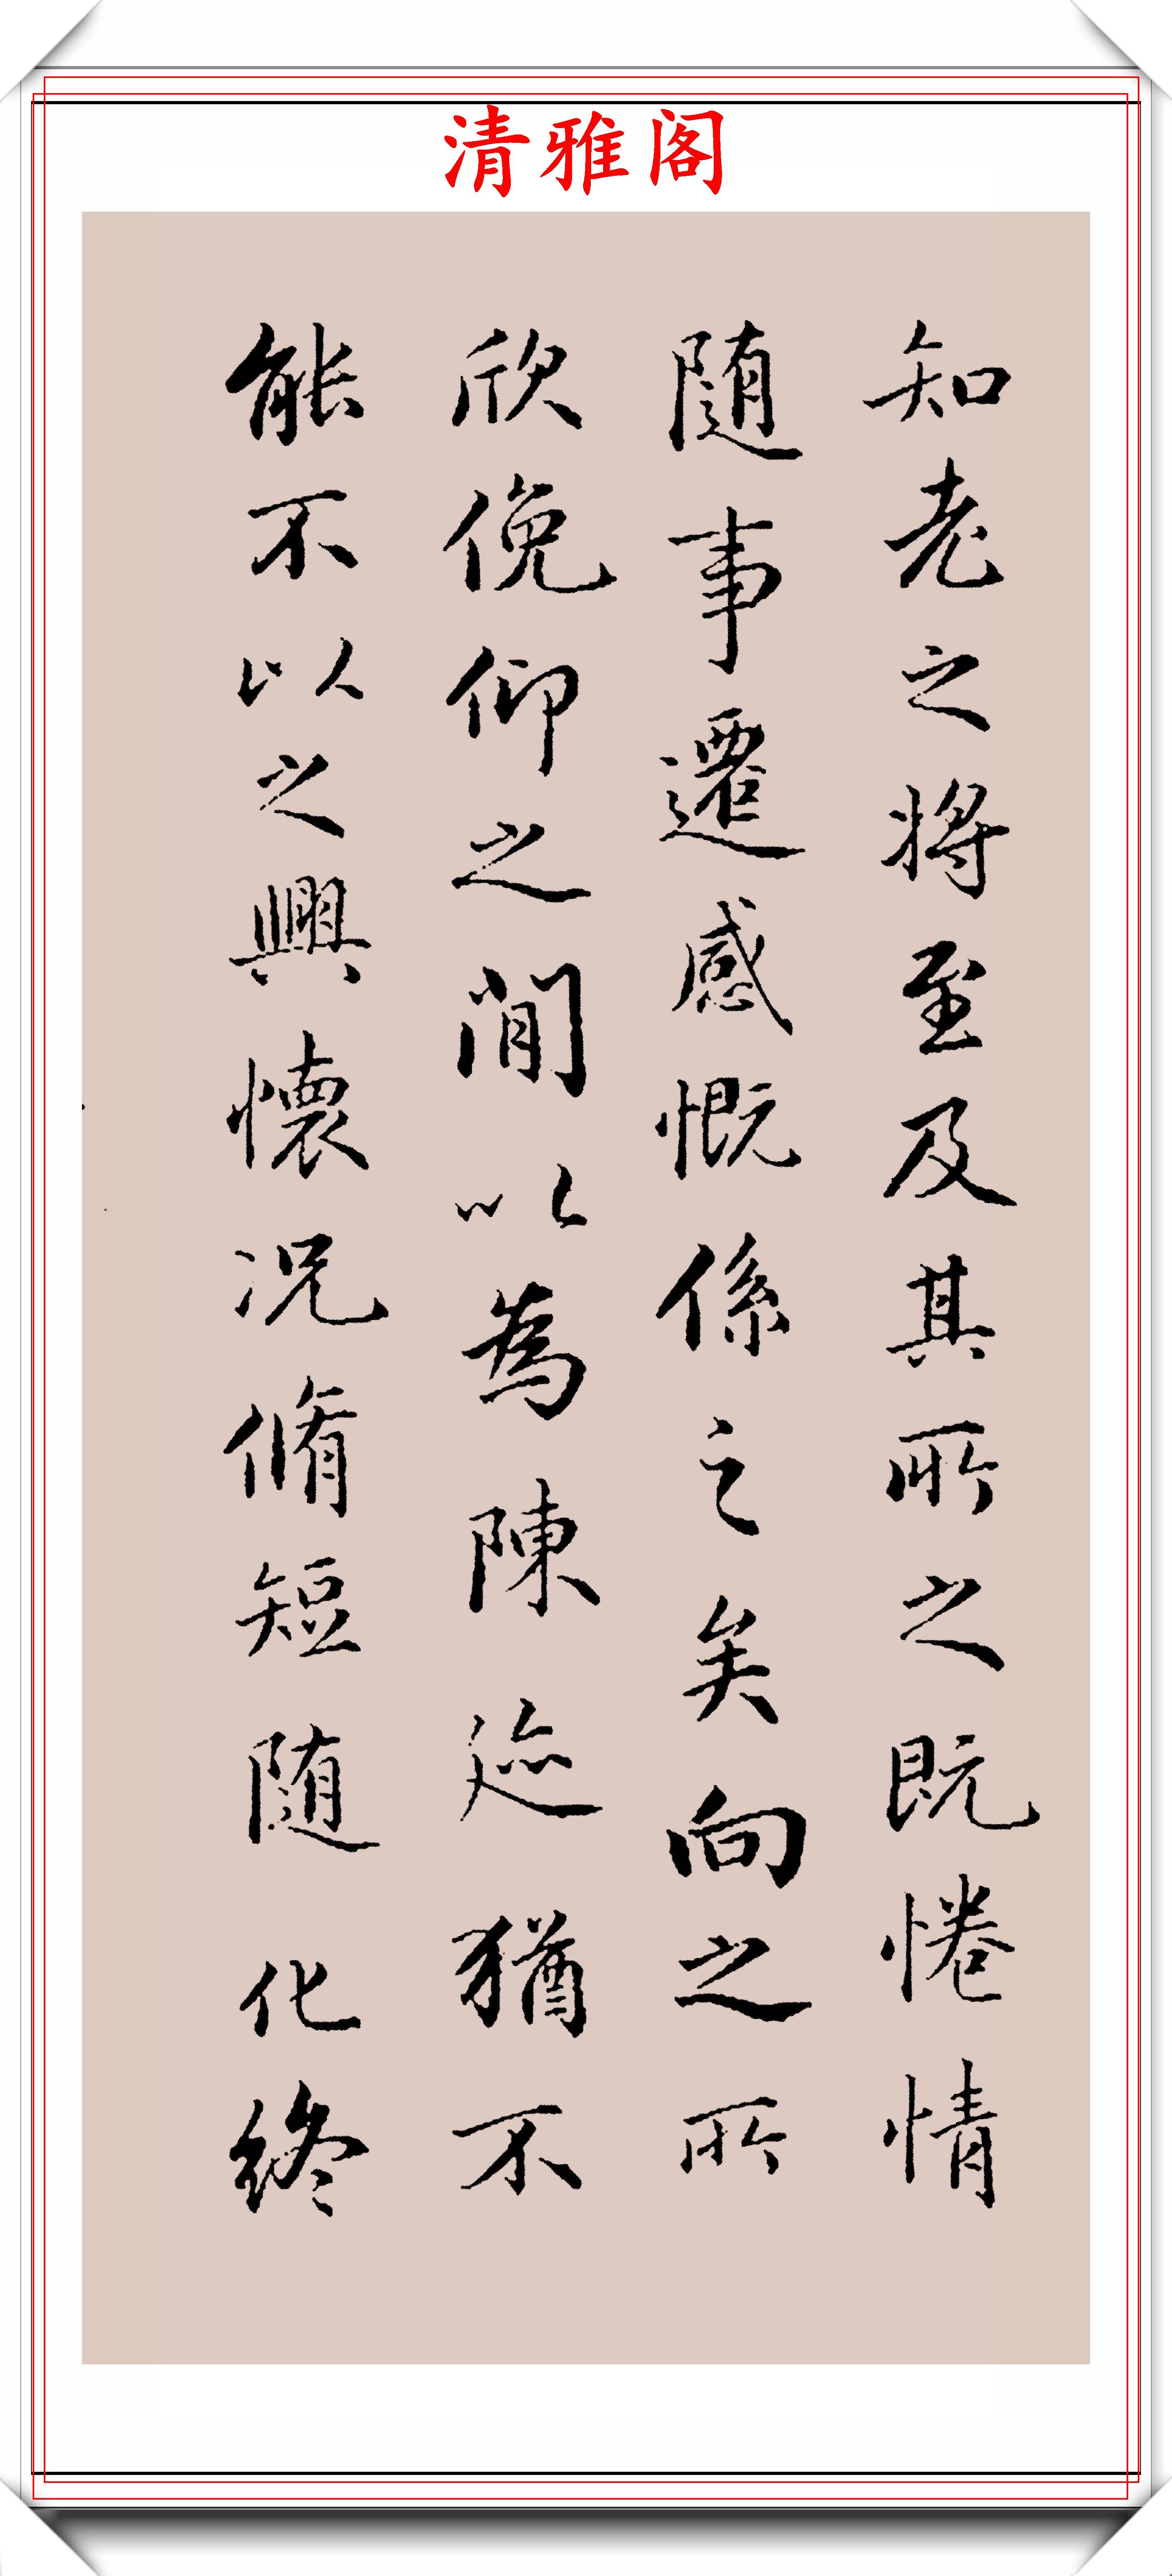 清雅阁
知老之将至及其所之既惓情
随事遷感慨係之矣向之所
欣俛仰之閒以為陳迹猶不
能不以之興懷况脩短随化終